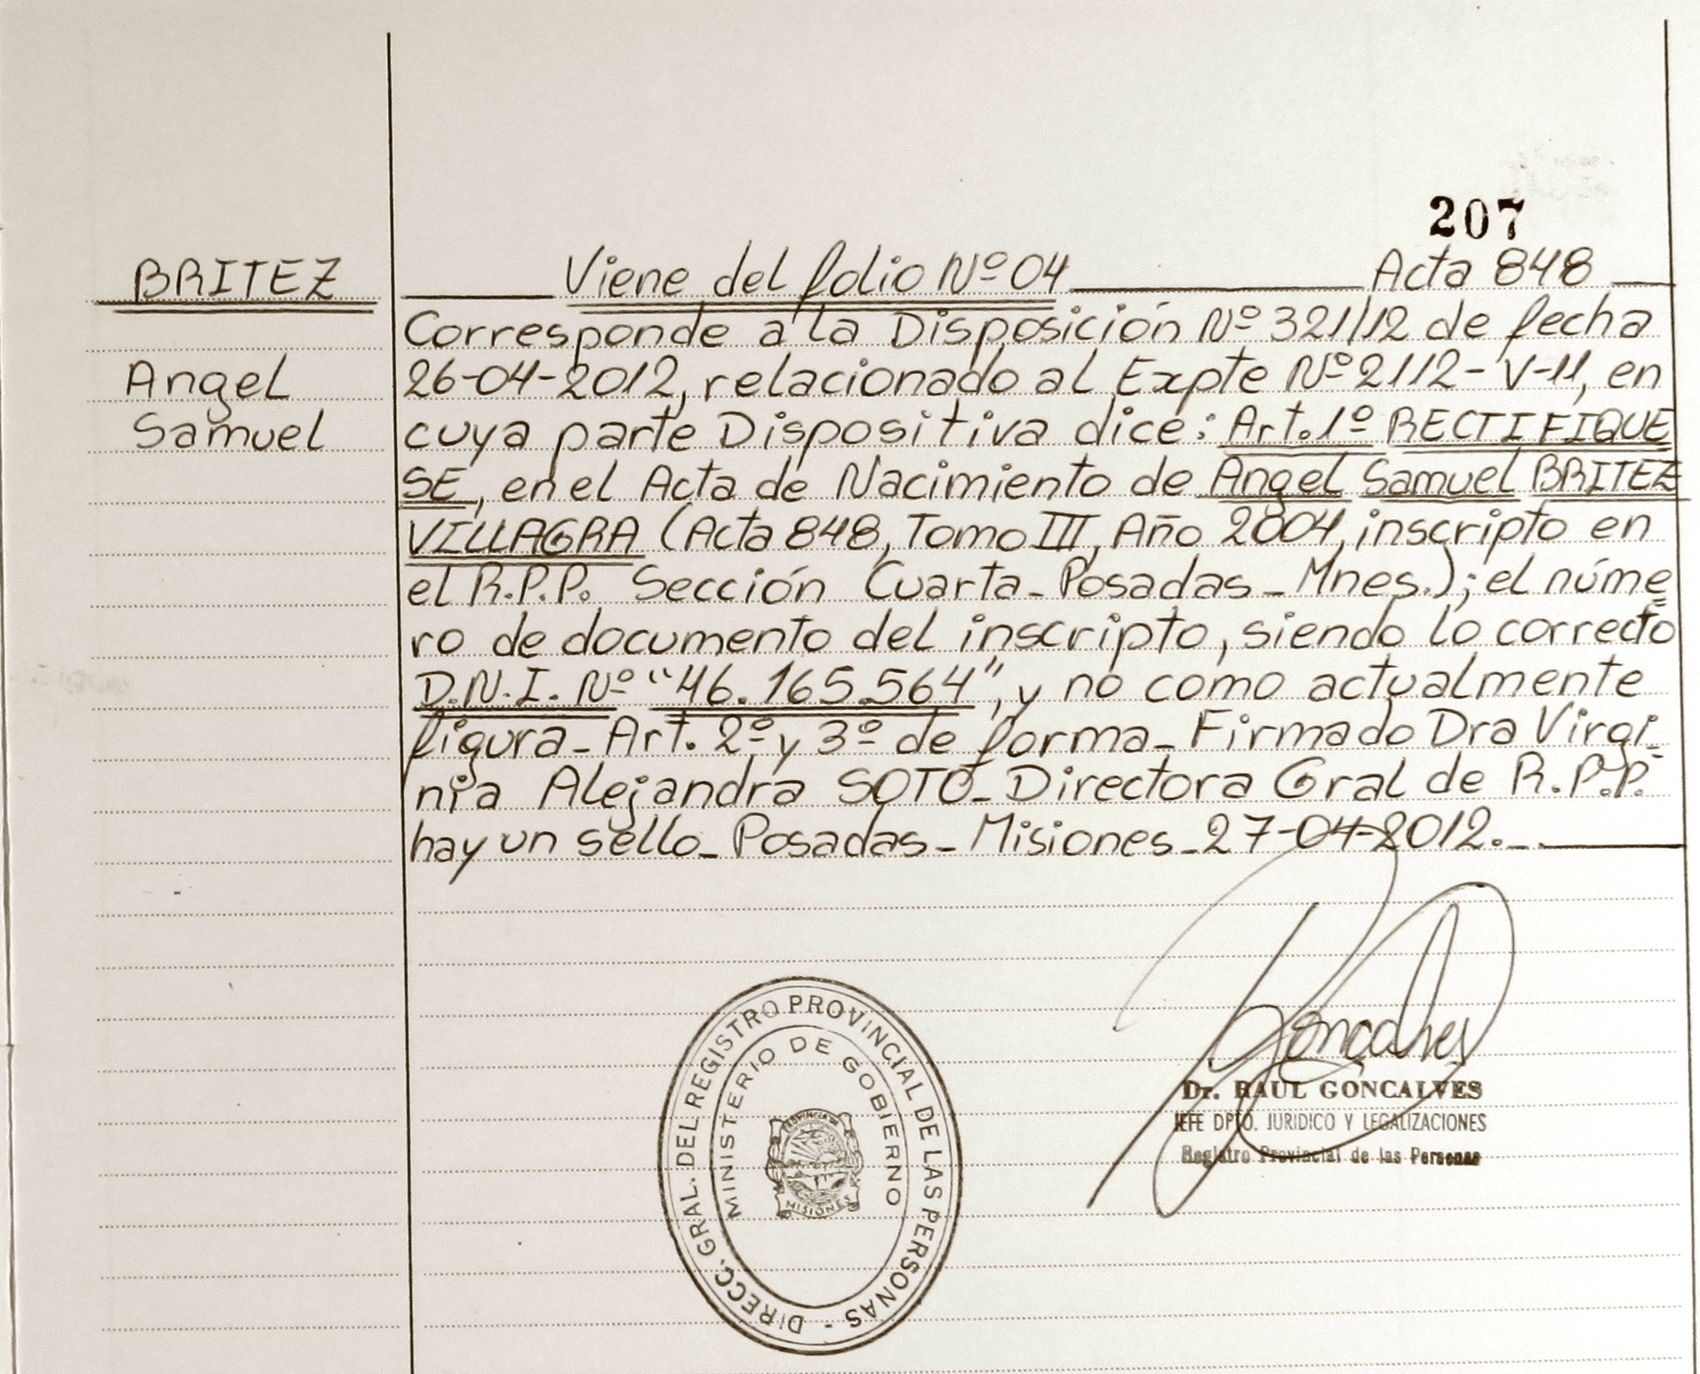 207
BRITEZ
Angel
Samuel
Viene del folio Nº 04 Acta 848
Corresponde a la Disposición Nº 321/12 de fecha
26-04-2012, relacionado al Expte Nº 2112-V-11, en
cuya parte Dispositiva dice: Art. 1º RECTIFIQUE
SE, en el Acta de Nacimiento de Angel Samuel BRITEZ
VILLAGRA (Acta 848, Tomo III, Año 2004, inscripto en
el R.P.P. Sección Cuarta - Posadas - Mnes.); el núme
ro de documento del inscripto, siendo lo correcto
D.N.I. Nº "46.165.564", y no como actualmente
figura - Art. 2º y 3º de forma - Firmado Dra Virgi-
nia Alejandra SOTO - Directora Gral de R.P.P.
hay un sello - Posadas - Misiones - 27-04-2012.-
Goncalves
Dr. RAUL GONCALVES
JEFE DPTO. JURIDICO Y LEGALIZACIONES
Registro Provincial de las Personas
DIRECC. GRAL. DEL REGISTRO PROVINCIAL DE LAS PERSONAS -
MINISTERIO DE GOBIERNO
MISIONES